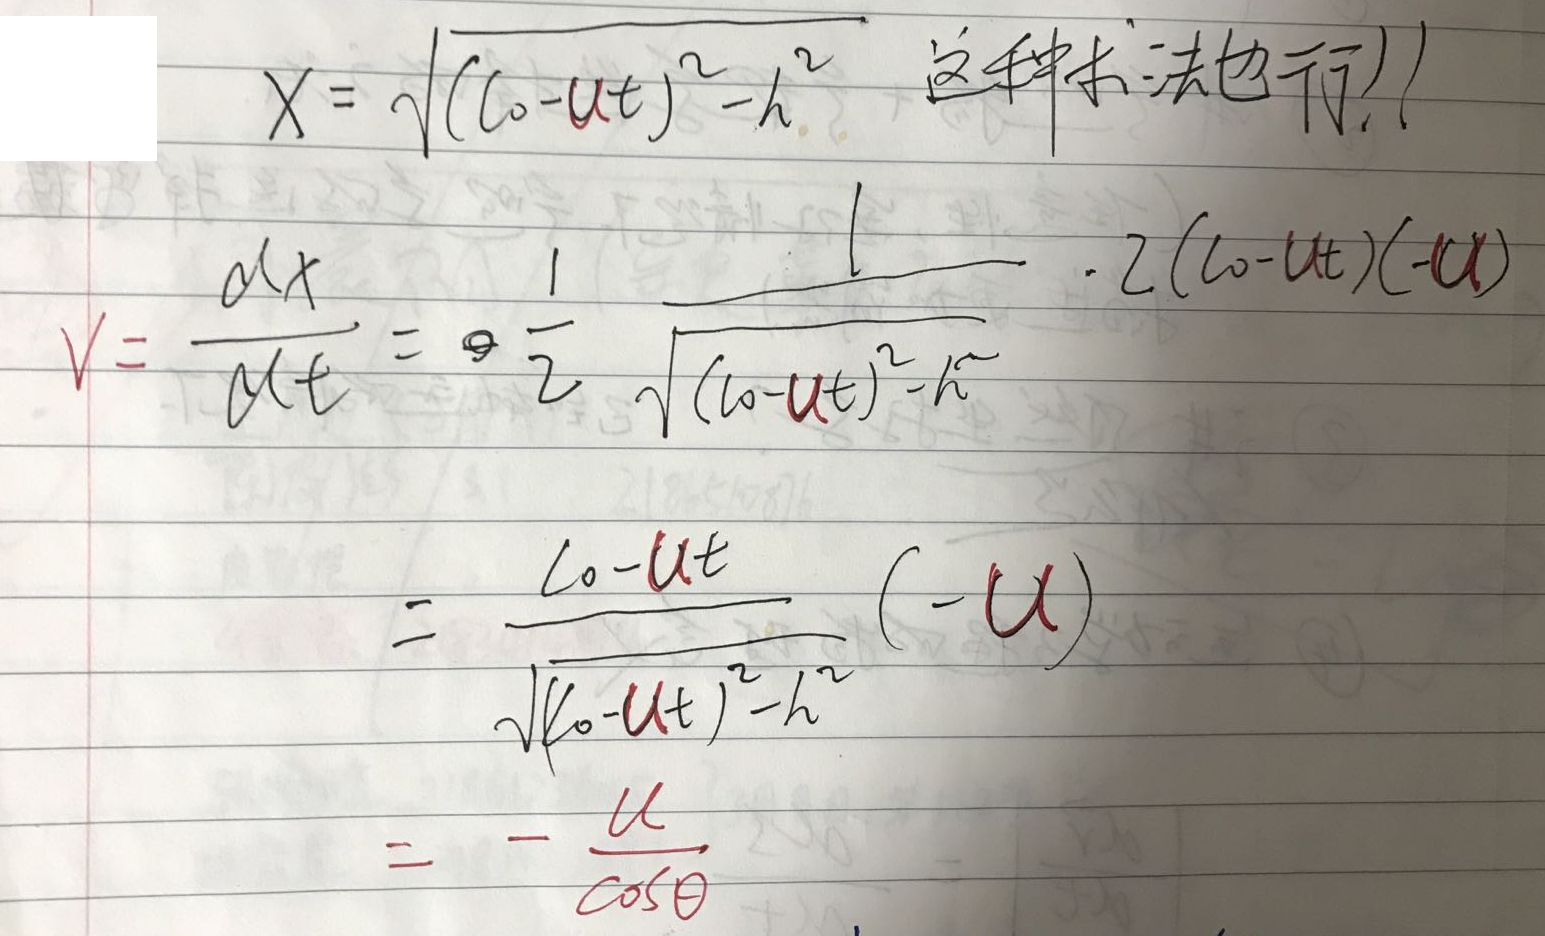 X = √((l₀-ut)²-h²) 这种求法也行!!
V = dx/dt = 1/2 1/√((l₀-ut)²-h²) · 2(l₀-ut)(-u)
= l₀-ut/√((l₀-ut)²-h²) (-u)
= - u/cosθ